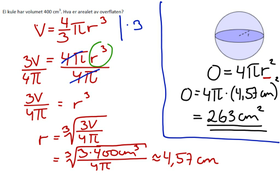 Ei kule har volumet 400 cm³. Hva er arealet av overflaten?
V = 4/3 πr³ | · 3
3V/4π = 4πr³/4π
3V/4π = r³
r = ∛(3V/4π)
= ∛(3·400cm³/4π) ≈ 4,57 cm
O = 4πr²
O = 4π · (4,57 cm)²
= 263 cm²